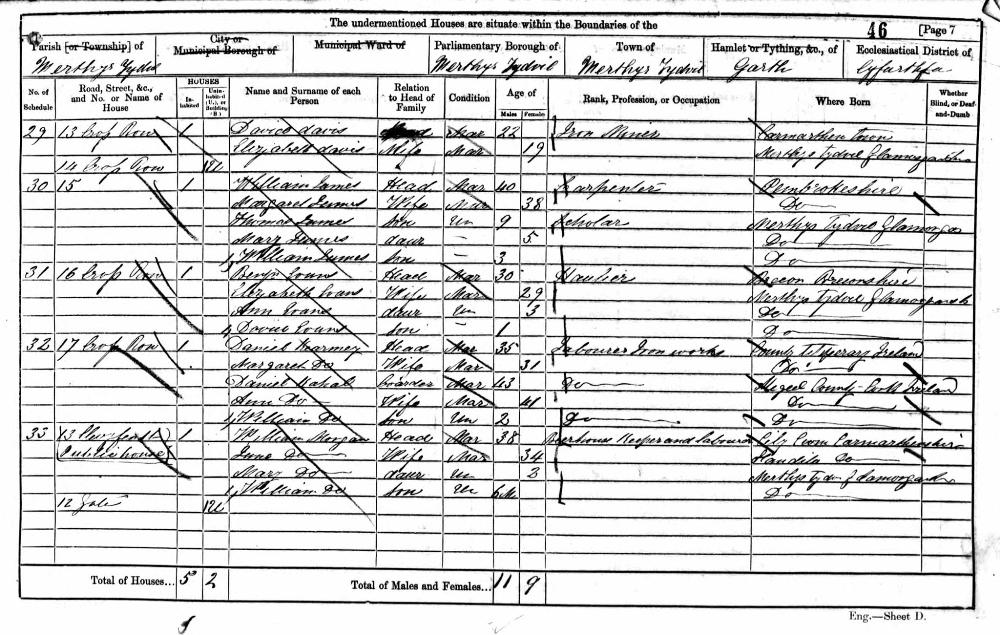 The undermentioned Houses are situate within the Boundaries of the
46 [Page 7
Parish [or Township] of
City or Municipal Borough of
Municipal Ward of
Parliamentary Borough of
Town of
Hamlet or Tything, &c., of
Ecclesiastical District of
Merthyr Tydvil Merthyr Tydvil Merthyr Tydvil Garth Cyfarthfa
No. of Schedule
Road, Street, &c., and No. or Name of House
HOUSES
Inhabited
Uninhabited (U.), or Building (B.)
Name and Surname of each Person
Relation to Head of Family
Condition
Age of
Males Females
Rank, Profession, or Occupation
Where Born
Whether Blind, or Deaf-and-Dumb
29 13 Crop Row 1 David Davis Head Mar 22 Iron Miner Carmarthen town
Elizabeth Davis Wife Mar 19 Merthyr Tydvil Glamorganshire
14 Crop Row 1U
30 15 1 William James Head Mar 40 Carpenter Pembrokeshire
Margaret James Wife Mar 38 Do
Thomas James Son Un 9 Scholar Merthyr Tydvil Glamorgan
Mary James daur — 5 Do
William James Son — 3 Do
31 16 Crop Row 1 Benjn Evans Head Mar 30 Haulier Brecon Breconshire
Elizabeth Evans Wife Mar 29 Merthyr Tydvil Glamorgansh
Ann Evans daur Un 3 Do
David Evans Son — 1 Do
32 17 Crop Row 1 Daniel Head Mar 35 Labourer Iron works County Tipperary Ireland
Margaret Do Wife Mar 31 Do
Daniel boarder Mar 43 Do County Cork Ireland
Ann Do Wife Mar 41 Do
William Do Son Un 2 Do Do
33 13 1 William Morgan Head Mar 38 Beerhouse Keeper and labourer Carmarthenshire
Public house Jane Do Wife Mar 34 Llandilo Do
Mary Do daur Un 2 Merthyr Tydvil Glamorgansh
William Do Son Un 6M Do
12 1U
Total of Houses... 5 2
Total of Males and Females... 11 9
Eng.—Sheet D.